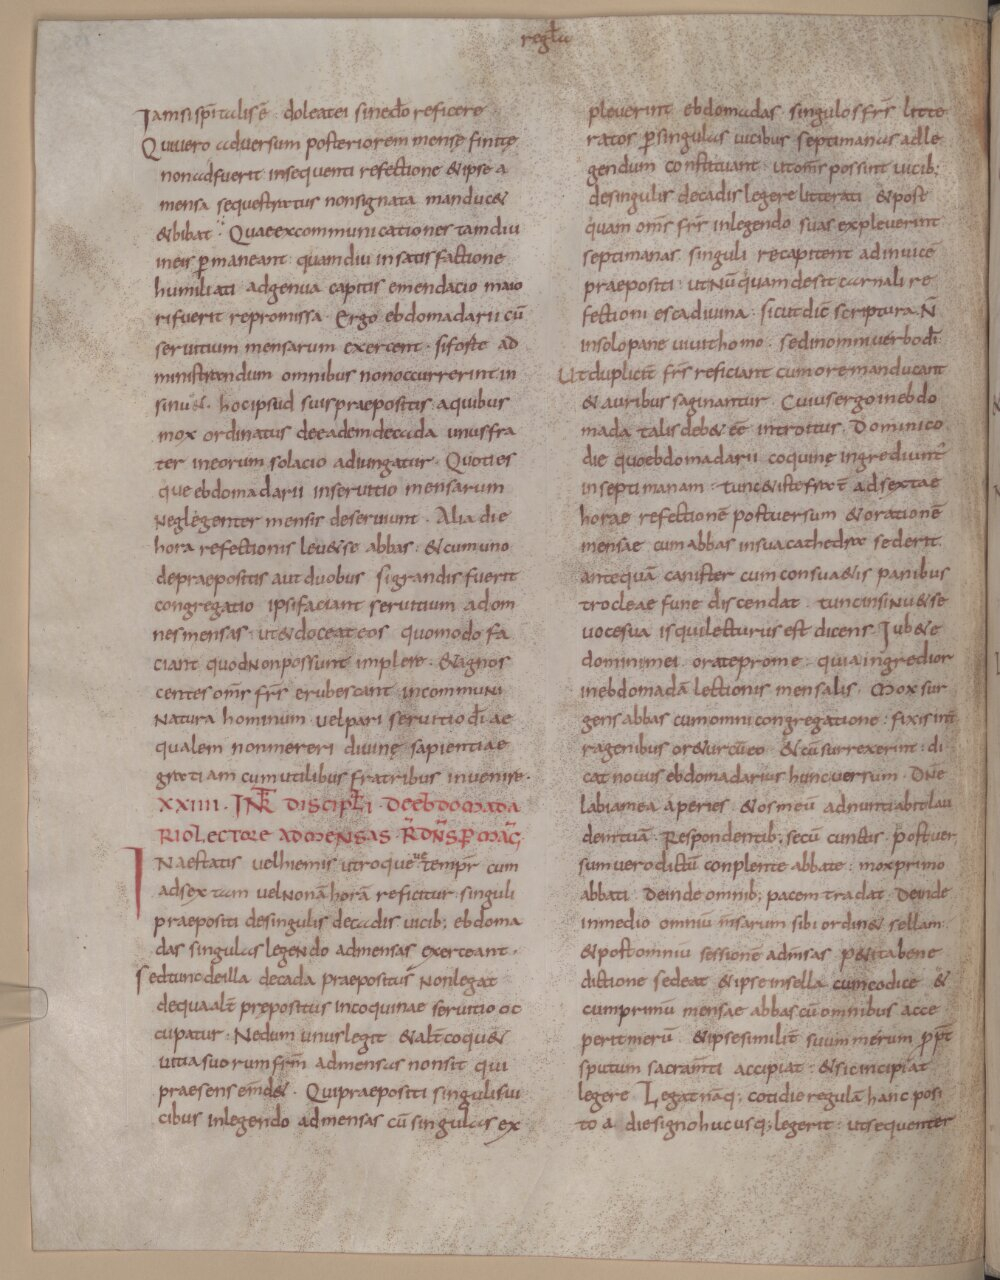 regła
Iamsi spitalis ē · doleat ei sine do reficere
Qui vero adversum posteriorem mense finitę
non adfuerit insequenti refectione & ipse a
mensa sequestratus non signata manduc&
& bibat · Quae excommunicationes tamdiu
in eis pmaneant · quamdiu in satisfactione
humiliati ad genua capitis emendacio maio
ri fuerit repromissa · Ergo ebdomadarii cū
servitium mensarum exercent · si foste ad
ministrandum omnibus non occurrerint in
sinu& · hoc ipsud suis praepositis a quibus
mox ordinatus de eadem decada unus fra
ter in eorum solacio adiungatur · Quoties
que ebdomadarii in servitio mensarum
neglegenter mensis deseruiunt · Alia die
hora refectionis leu& se abbas · & cum uno
de praepositis aut duobus si grandis fuerit
congregatio ipsi faciant servitium ad om
nes mensas · ut & doceat eos quomodo fa
ciant quod non possunt implere · & agnos
centes oms frs erubescant in communi
natura hominum vel pari servitio di ae
qualem non mereri divinę sapientiae
gratiam cum utilibus fratribus invenire ·
XXIIII · INR̄ DISCIPLI · DE EBDOMADA
RIO LECTORE AD MENSAS · R̄ DN̄S P MAḠ;
IN aestatis vel hiemis utroque ue tempr cum
ad sextam vel nonā horā reficitur · singuli
praepositi de singulis decadis vicib; ebdoma
das singulas legendo ad mensas exerceant ·
sed tunc de illa decada praepositus non legat
de qua alt prepositus in coquinae servitio oc
cupatur · Ne dum unus legit & alt coqu&
vitia suorum frm ad mensas non sit qui
praesens emd& · Qui praepositi singulis ui
cibus in legendo ad mensas cū singulas ex
pleverint ebdomadas singulos frs litte
ratos p singulas vicibus septimanas ad le
gendum constituant · ut oms possint vicib;
de singulis decadis legere litterati & post
quam oms frs in legendo suas expleverint
septimanas singuli recapitent ad invicē
praepositi · ut nūquam desit carnali re
fectioni esca divina · sicut dic scriptura N̄
in solo pane vivit homo · sed in omni verbo di
Ut duplicit frs reficiant cum ore manducant
& auribus saginantur · Cuius ergo in ebdo
mada talis deb& eē introitus · Dominico
die quo ebdomadarii coquinę ingrediunt
in septimanam · tunc & iste frat ad sextae
horae refectionē post versum & orationē
mensae cum abbas in sua cathedra sederit
antequā canister cum consua&is panibus
trocleae fune discendat · tunc insinu& se
voce sua is qui lecturus est dicens Iub&e
domini mei orate pro me · quia ingredior
in ebdomadā lectionis mensalis · Mox sur
gens abbas cum omni congregatione · fixis int
ra genibus or&ur cū eo · & cū surrexerint · di
cat novus ebdomadarius hunc versum · Dn̄e
labia mea aperies & os meū adnuntiabit lau
dem tuā · Respondentib; secū cunctis · post ver
sum vero dictū conplente abbate · mox primo
abbati deinde omnib; pacem tradat · Deinde
in medio omniū msarum sibi ordin& sellam
& post omniū sessionē ad msas p & ita bene
dictione sedeat & ipse in sella cum codice &
cum primū mensae abbas cū omnibus acce
perit merū · & ipse similit suum merum ppt
sputum sacramti accipiat · & sic incipiat
legere Legat nāq; cotidie regulā hanc posi
to a die signo hucusq; legerit · ut sequenter